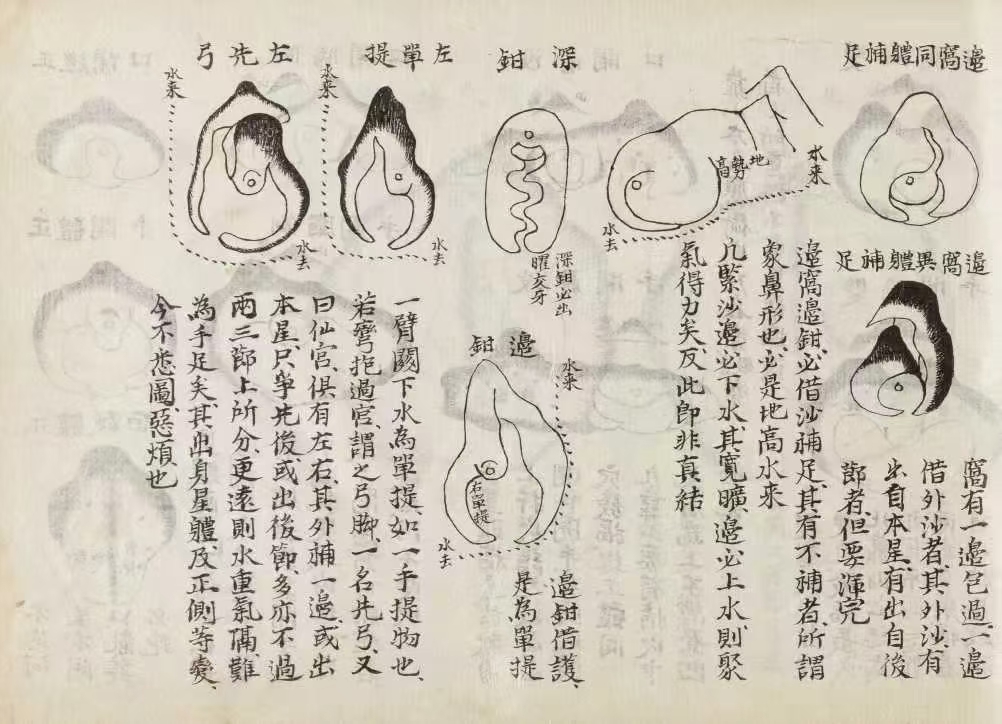 邉窩同體補足
邉窩異體補足
窩有一邉包過一邉
借外沙者其外沙有
出自本星有出自後
節者但要渾完
邉窩邉鉗必借沙補足其有不補者所謂
象鼻形也必是地高水來
几緊沙邉必下水其寬曠邉必上水則聚
氣得力矣反此即非真結
水来
地勢高
水去
深鉗
深鉗必出
曜交牙
邉鉗
水来
右單提
水去
邉鉗借護
是為單提
左單提
水来
水去
左先弓
水来
水去
一臂闊下水為單提如一手提物也
若彎抱過宮謂之弓脚一名先弓又
曰仙宮俱有左右其外補一邉或出
本星只爭先後或出後節多亦不過
兩三節上所分更遠則水重氣隔難
為手足矣其出身星體及正側等變
今不悉圖惡煩也